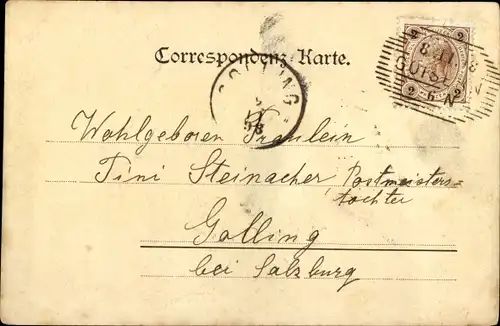 Correspondenz-Karte.
2 2
8 11 98
GOLLING
98
Wohlgeboren Fräulein
Tini Steinacher, Postmeisters=
tochter
Golling
bei Salzburg